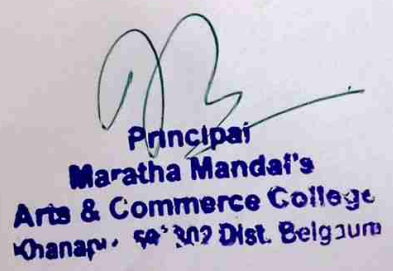 Principal
Maratha Mandal's
Arts & Commerce College
Khanapur 302 Dist. Belgaum